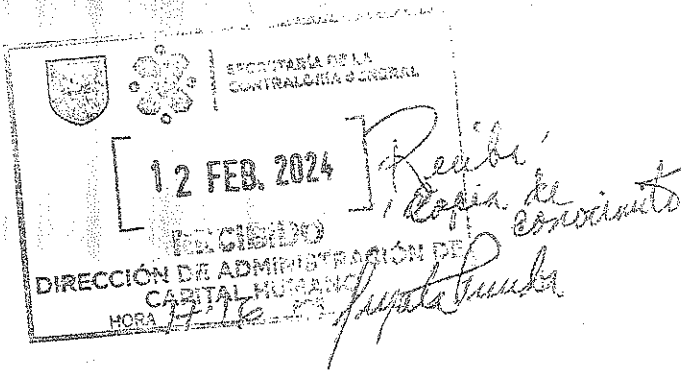 SECRETARÍA DE LA
CONTRALORÍA GENERAL
12 FEB. 2024
RECIBIDO
DIRECCIÓN DE ADMINISTRACIÓN DE
CAPITAL HUMANO
HORA 17:16
Recibí
copia de
conocimiento